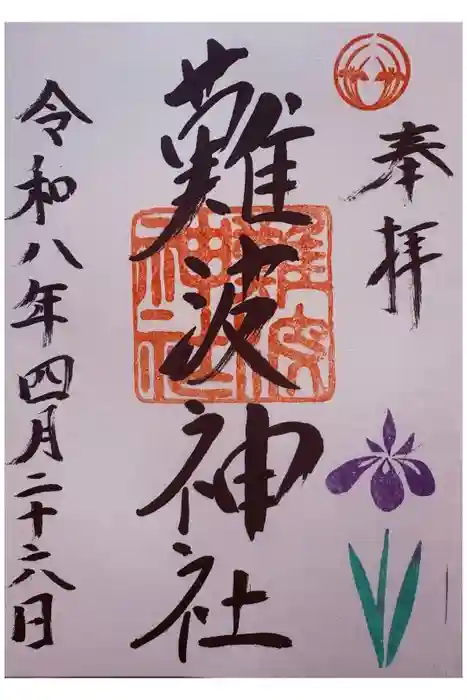 奉拝
難波神社
難波神社
令和八年四月二十六日